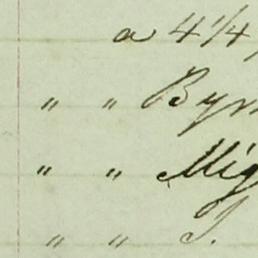 a 4 1/4
" " Byr
" " Mig
" " T.